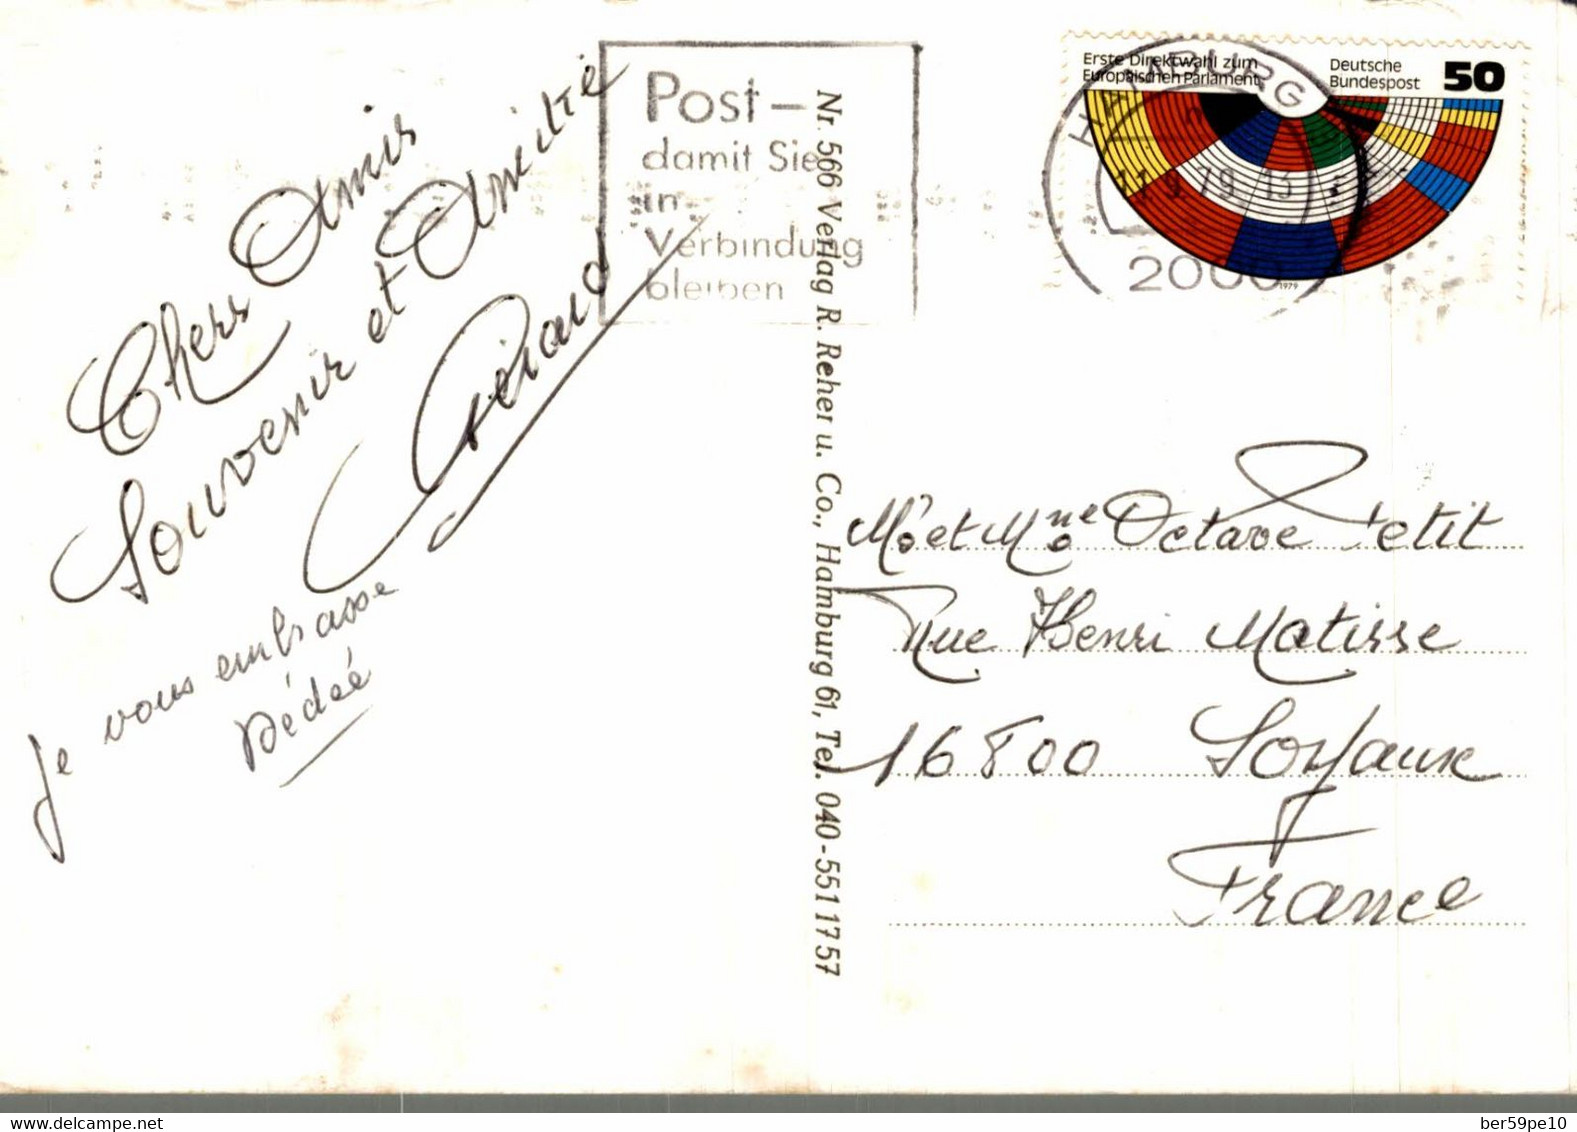 Chers Amis
Souvenir et Amitié
Gérard
Je vous embrasse
Dédée
Post-
damit Sie
in
Verbindung
bleiben
Nr. 566 Verlag R. Reher u. Co., Hamburg 61, Tel. 040-551 17 57
HAMBURG
79
2000
Erste Direktwahl zum
Europäischen Parlament
Deutsche
Bundespost
50
1979
Mr et Mme Octave Petit
Rue Henri Matisse
16800 Soyaux
France
delcampe.net
ber59pe10